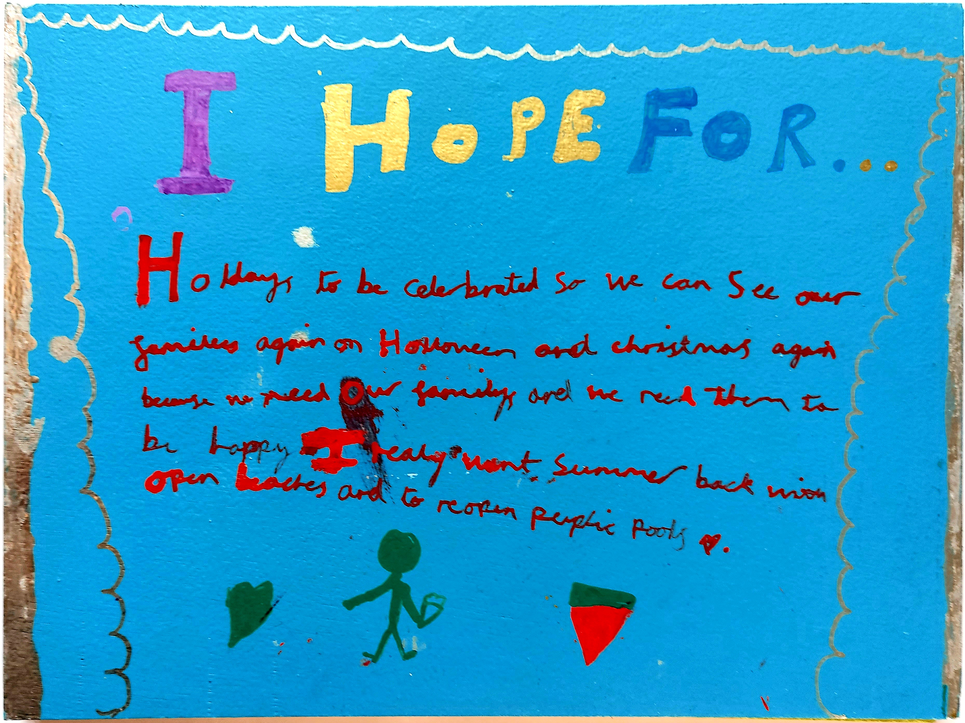 I HOPE FOR...
Holidays to be celerbrated So we can See our
families again on Holloween and christmas again
because we need Our familys and we need them to
be happy I realy want Summer back with
open beaches and to reopen peuplic pools